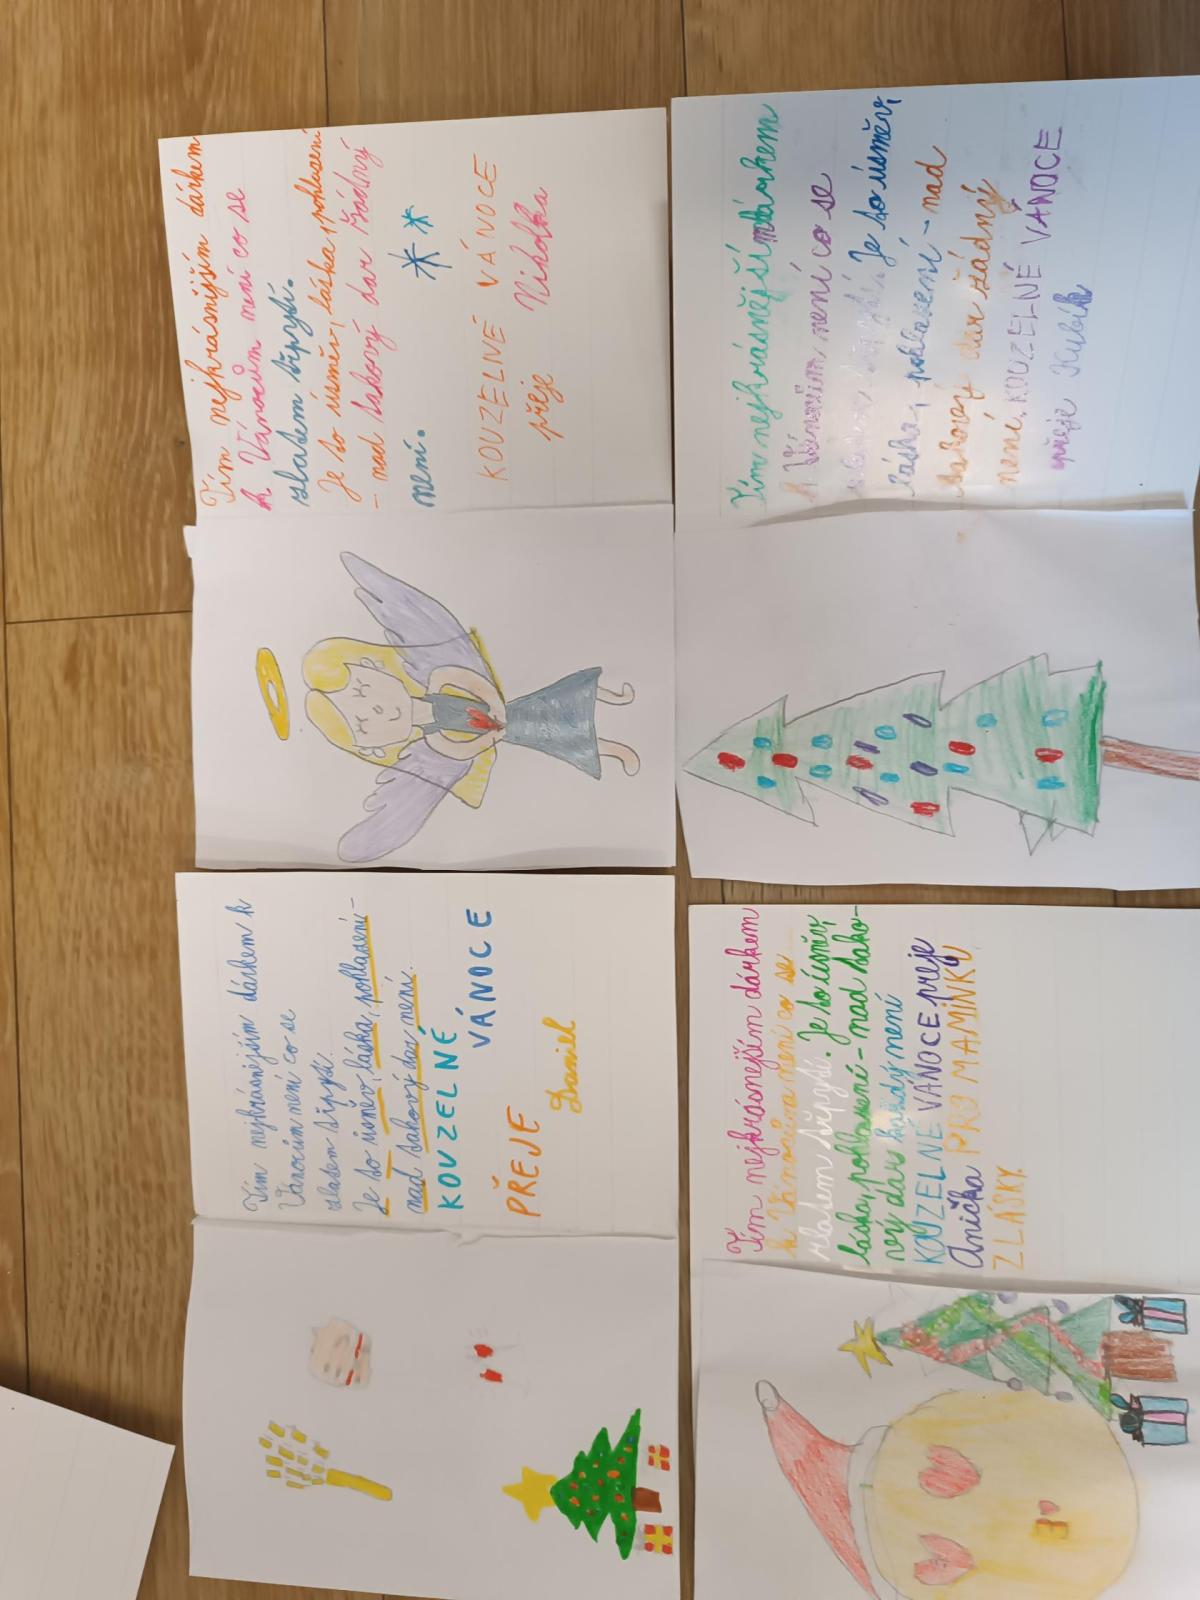 Tím nejkrásnějším dárkem k
Vánocům není co se
zlatem třpytí.
Je to úsměv, láska, pohlazení –
nad takový dar není.
KOUZELNÉ
VÁNOCE
PŘEJE
Daniel
Tím nejkrásnějším dárkem
k Vánocům není co se
zlatem třpytí.
Je to úsměv, láska, pohlazení
– nad takový dar žádný
není.
KOUZELIVÉ VÁNOCE
přeje
Nikolka
Tím nejkrásnějším dárkem
k Vánocům není co se
zlatem třpytí. Je to úsměv,
láska, pohlazení – nad tako-
vý dar žádný není
KOUZELNÉ VÁNOCE přeje
Anička PRO MAMINKU
Z LÁSKY.
Tím nejkrásnější dárkem
k Vánocům není co se
Je to úsměv,
láska, pohlazení – nad
takový dar žádný
není. KOUZELNÉ VÁNOCE
přeje Kubík